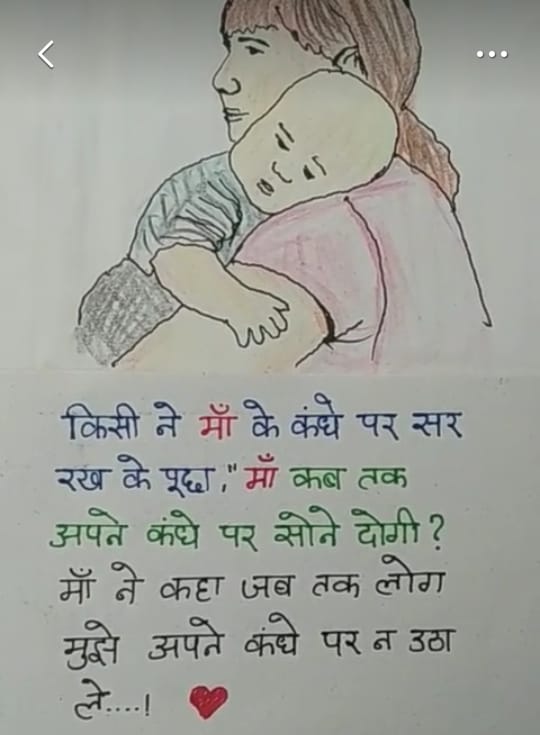 किसी ने माँ के कंधे पर सर
रख के पूछा,"माँ कब तक
अपने कंधे पर सोने दोगी?
माँ ने कहा जब तक लोग
मुझे अपने कंधे पर न उठा
ले....!